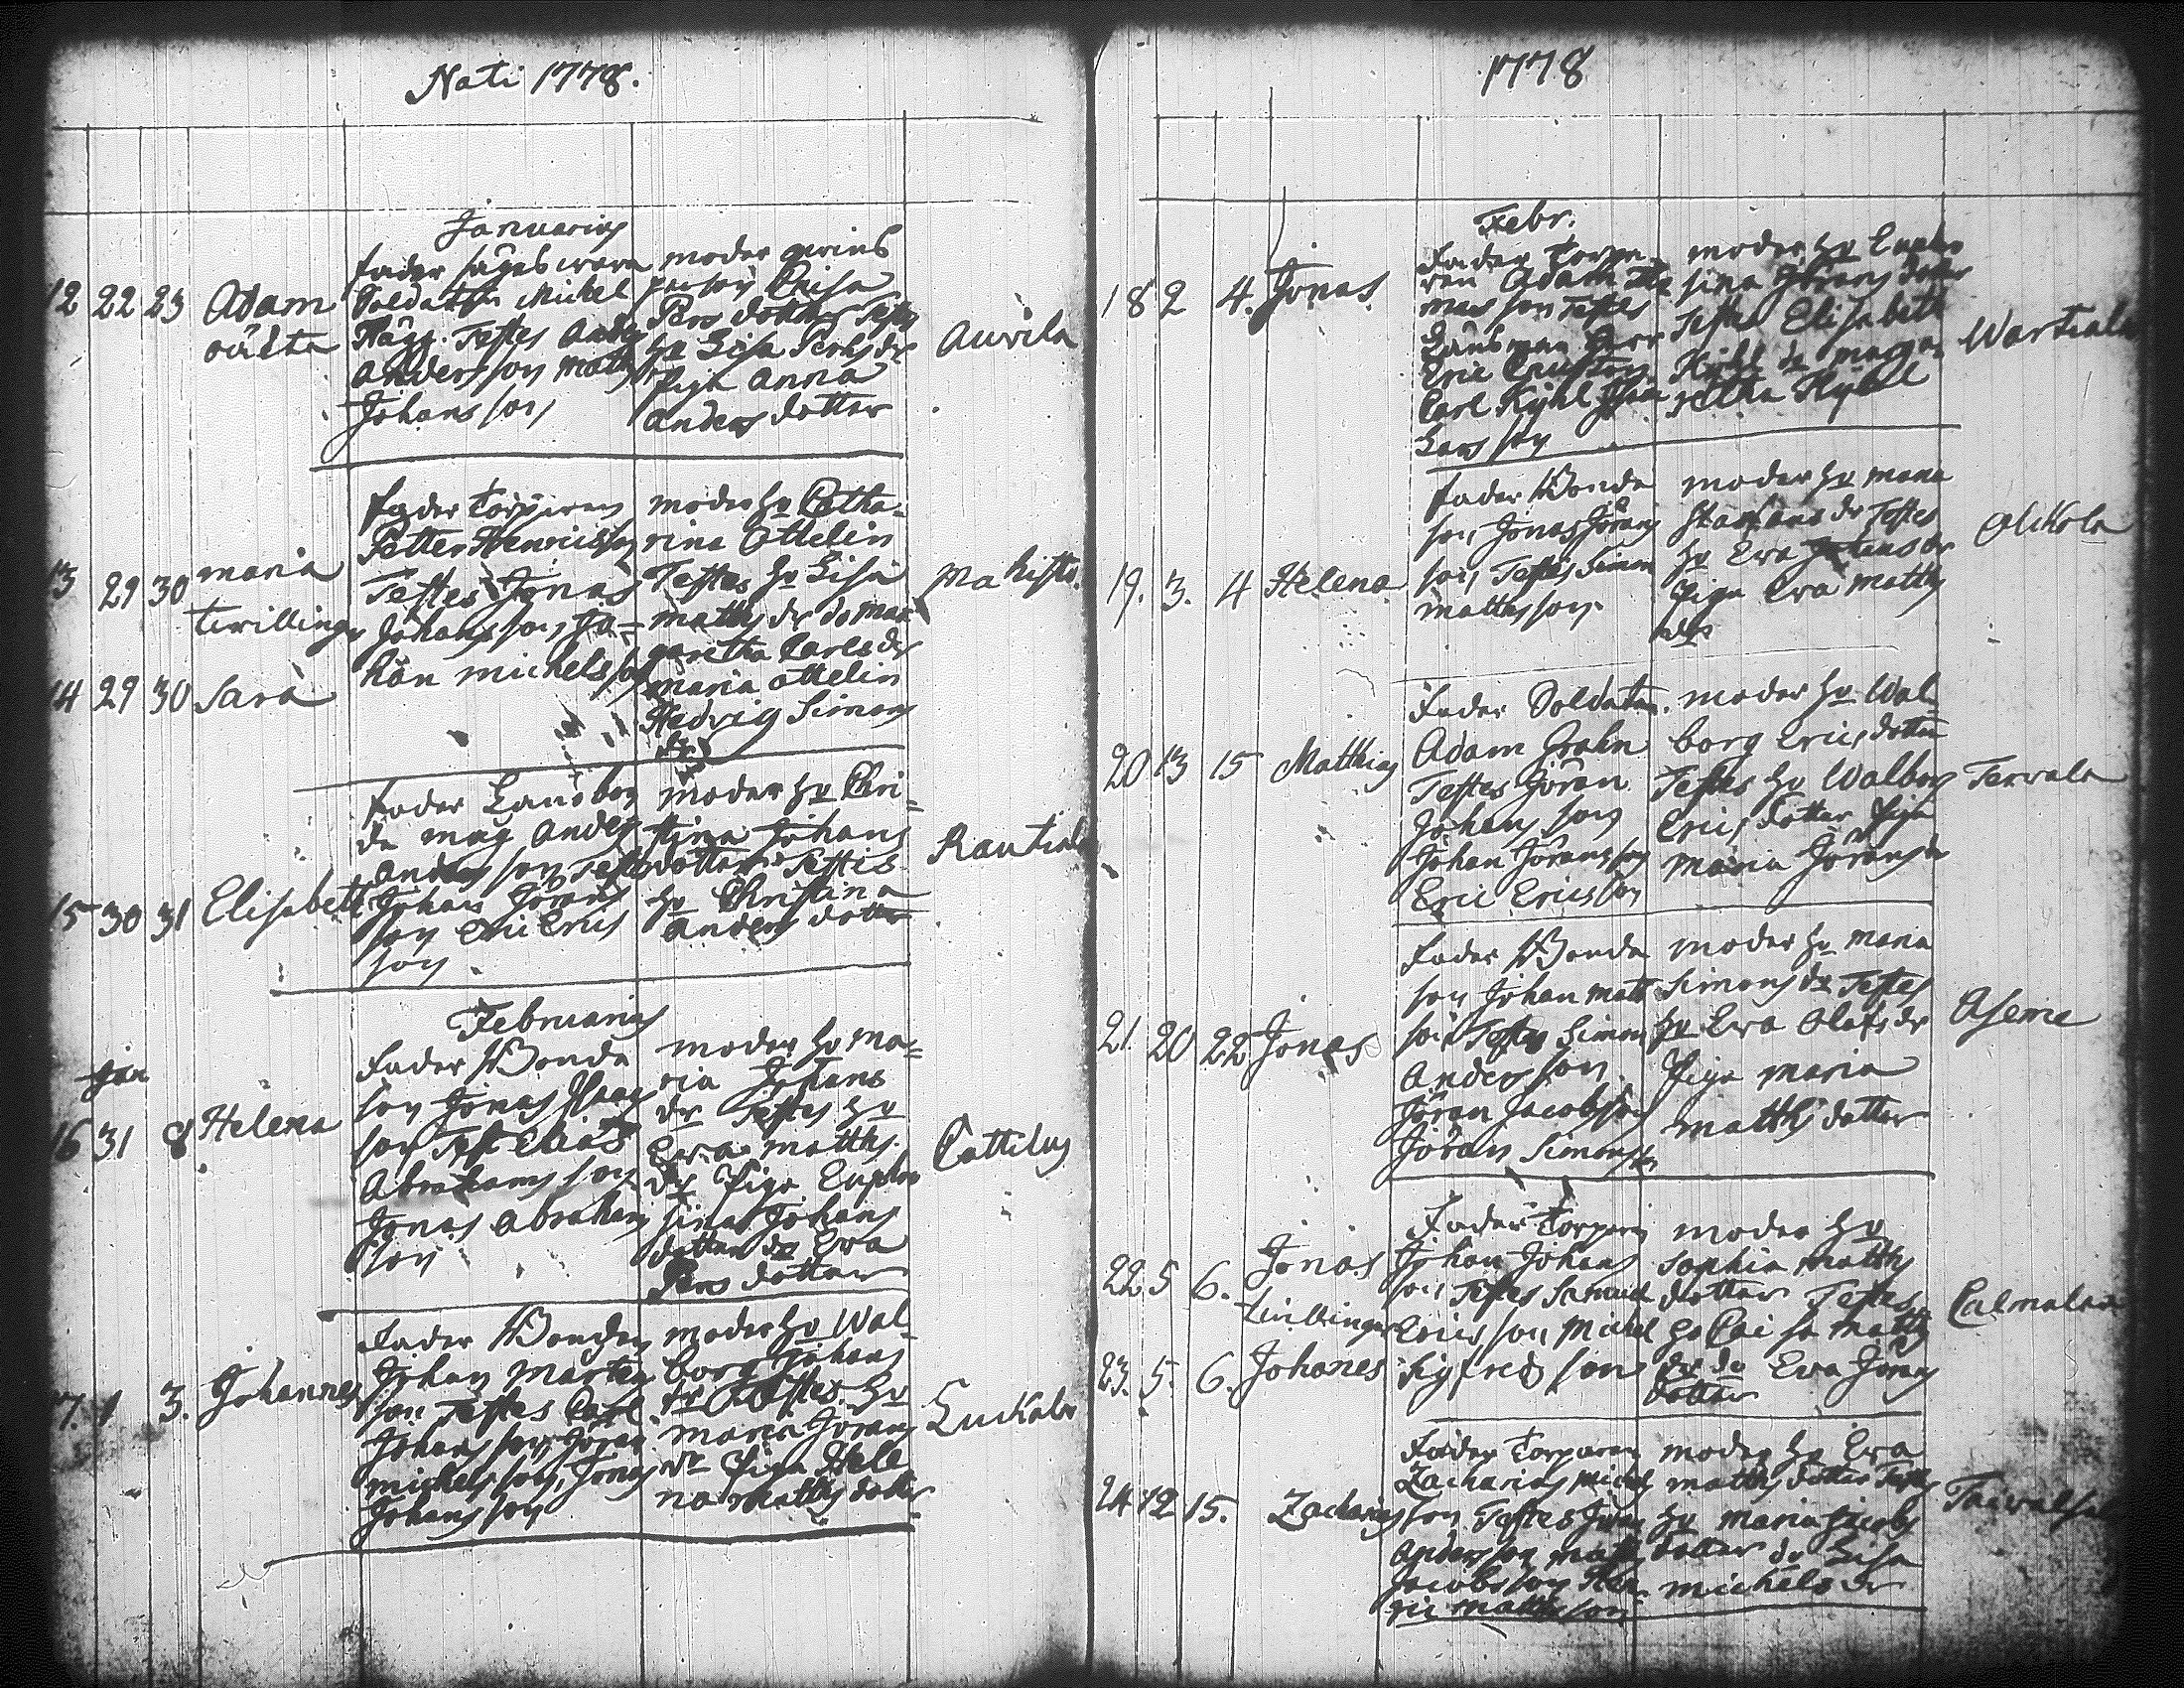 Nati 1778.
Januarius
12 22 23 Adam oäkta
Fader säges wara
Soldaten Michel
Hägg. Testes Anders
Andersson Matts
Johansson
moder qvins
person Caisa
Pers dotter Testes
Hu Lisa Pehrs dr
Piga Anna
Anders dotter
Auvila
13 29 30 Maria
tvillingar
14 29 30 Sara
Fader Torparen
Petter Henricsson
Testes Jonas
Johansson, Jo=
han Michelsson
moder Hu Catha=
rina Ottelin
Testes Hu Lisa
Matths dr do Mar
garetha Carls dr
Maria Ottelin
Hedvig Simons
dr
Mahisto.
15 30 31 Elisabeth
Fader Landbon
de måg Anders
Andersson Testes
Johan Jörans
son Eric Erics
son
moder Hu Chri=
stina Johans
dotter Testes
Hu Christina
Anders dotter
Rautiala
Februarius
Jan
16 31 8 Helena
Fader Bonde
son Jonas Isaacs
son Test Elias
Abrahamsson
Jonas Abrahams
son
moder Hu Ma=
ria Johans
dr Testes Hu
Ewa Matths
dr Piga Euphro
sina Johans
dotter do Ewa
Pers dotter
Cattilus
17. 1 3. Johannes
Fader Bonden
Johan Mårtens
son Testes Carl
Johansson, Jöran
Michelsson, Jonas
Johansson
moder Hu Wal=
borg Johans
dr Testes Hu
Maria Jörans
dr Piga Hele
na Matths dotter
Luckala
1778
Febr.
18 2 4. Jonas
Fader Torpa
ren Adam Tho
mas son Testes
Länsman Herr
Eric
Carl Kyhl Isac
Lars son
moder Hu Euphro
sina Jörans dotter
Testes Elisabeth
Kyhl do Marga
retha Kyhl
Wartiala
19. 3. 4 Helena
Fader Bonde
son Jonas Jörans
son, Testes Simon
Matthsson.
moder Hu Maria
Staffans dr Testes
Hu Ewa Johans dr
Piga Ewa Matths
dr
Alikola
20 13 15 Matthias
Fader Soldaten
Adam Grahn
Testes Jöran
Johans son
Johan Jöransson
Eric Ericsson
moder Hu Wal=
borg Erics dotter
Testes Hu Walborg
Erics dotter Piga
Maria Jörans dr
Terwala
21. 20 22 Jonas
Fader Bonde
son Johan Matts
son Testes Simon
Andersson
Jöran Jacobsson
Jöran Simonsson
moder Hu Maria
Simons dr Testes
Hu Ewa Olofs dr
Piga Maria
Matths dotter
Asema
22 5 6. Jonas
tvillingar
23. 5. 6. Johanes
Fader Torparen
Johan Johans
son Testes Samuel
Ericsson Michel
Sigfreds son
moder Hu
Sophia Matths
dotter Testes
Hu Caisa Matths
dr do Ewa Jörans
dotter
Calmalaa
24 12 15. Zacharias
Fader Torparen
Zacharias Michels
son Testes Jöran
Andersson Matts
Jacobsson Hen
ric Matthsson
moder Hu Ewa
Matths dotter Testes
Hu Maria Jacobs
dotter do Lisa
Michels dr